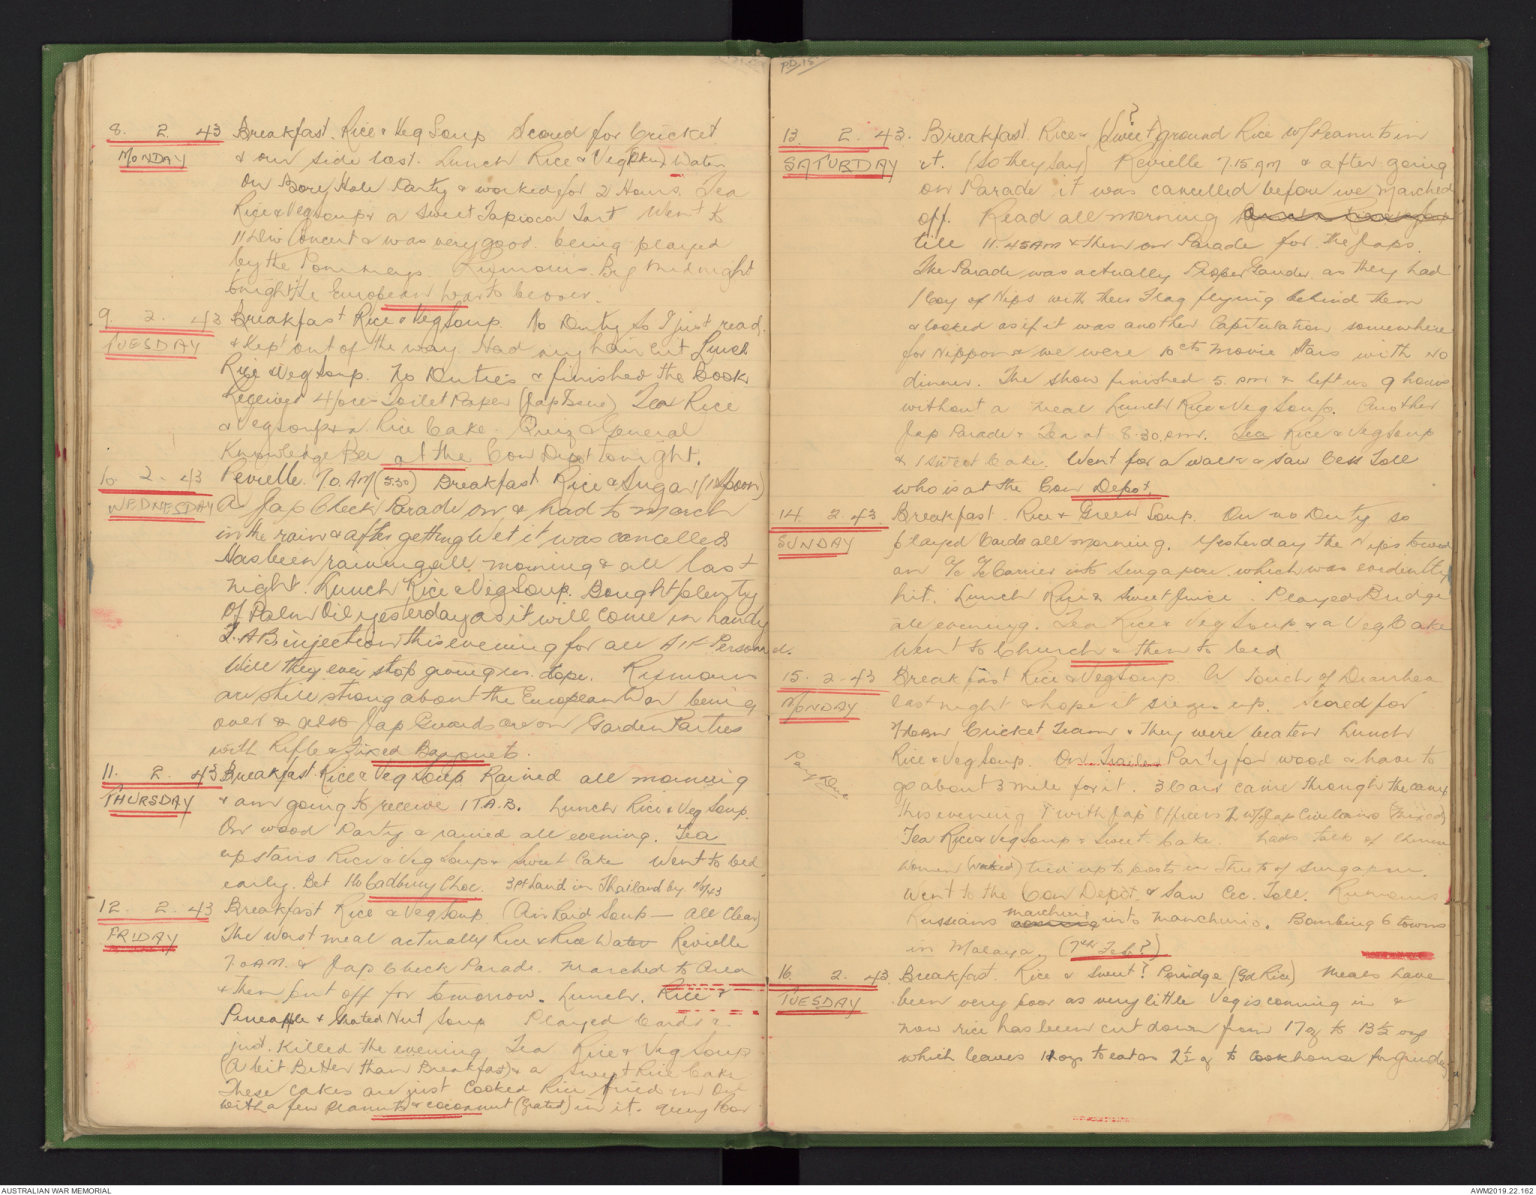 8. 2. 43 Breakfast. Rice & Veg Soup Scored for Cricket
MONDAY & our side lost. Lunch Rice & Veg Water
On Bore Hole Party & worked for 2 Hours. Tea
Rice & Veg Soup & a Sweet Tapioca Tart Went to
11 Div Concert & was very good. being played
by the Pommeys. Rumours. Big Midnight
tonight, the European War to be over.
9. 2. 43 Breakfast Rice & Veg Soup. No Duty so I just read.
TUESDAY & kept out of the way. Had my hair cut Lunch
Rice & Veg Soup. No Duties & finished the Book
Received Toilet Paper (Jap Issue) Tea Rice
& Veg Soup & a Rice Cake. Quiz & General
Knowledge Bee at the Con Depot tonight.
10. 2. 43 Revielle. 7.0 AM (5.30) Breakfast Rice & Sugar (1 Spoon)
WEDNESDAY A Jap Check Parade on & had to march
in the rain & after getting Wet it was cancelled
Has been raining all morning & all last
night. Lunch Rice & Veg Soup. Bought plenty
Of Palm Oil yesterday as it will come in handy
T.A.B injection this evening for all AIF Personnel.
Will they ever stop giving us dope. Rumours
are still strong about the European War being
over & also Jap Guards are on Garden Parties
with Rifle & Fixed Bayonets.
11. 2. 43 Breakfast Rice & Veg Soup Rained all morning
THURSDAY & am going to receive 1 T.A.B. Lunch Rice & Veg Soup.
On wood Party & rained all evening. Tea
upstairs Rice & Veg Soup & Sweet Cake Went to bed
early. Bet Cadbury Choc. land in Thailand by
12. 2. 43 Breakfast Rice & Veg Soup (Air Raid Soup — All Clear)
FRIDAY The worst meal actually Rice & Rice Water Revielle
7.0 AM. & Jap Check Parade. Marched to Area
& then put off for tomorrow. Lunch. Rice &
Pineapple & Grated Nut Soup Played Cards &
just killed the evening Tea Rice & Veg Soup
(A bit Better than Breakfast) & a Sweet Rice Cake
These cakes are just Cooked Rice fried in Oil
with a few Peanuts & cocoanut (Grated) in it. Very Poor
PD 15
?
13. 2. 43. Breakfast Rice & (Sweet) ground Rice w/ Peanuts in
SATURDAY it. (So they say) Revielle 7.15 AM & after going
on Parade it was cancelled before we marched
off. Read all morning
till 11.45 AM & then on Parade for the Japs.
The Parade was actually Proper Gander, as they had
1 Coy of Nips with their Flag flying behind them
& looked as if it was another Capitulation somewhere
for Nippon & we were 10cts Movie Stars with no
dinner. The show finished 5. pm & left us 9 hours
without a meal Lunch Rice & Veg Soup. Another
Jap Parade & Tea at 8.30 pm. Tea Rice & Veg Soup
& 1 Sweet Cake. Went for a walk & saw Cess Toll
who is at the Con Depot.
14. 2. 43. Breakfast. Rice & Green Soup. On no Duty so
SUNDAY played Cards all morning. Yesterday the Nips towed
an Carrier into Singapore which was evidently
hit. Lunch Rice & Sweet Juice. Played Bridge
all evening. Tea Rice & Veg Soup & a Veg Cake
Went to Church & then to bed
15. 2. 43 Breakfast Rice & Veg Soup. A Touch of Diarrhea
MONDAY last night & hope it eases up. Scored for
Team Cricket Team & They were beaten Lunch
Rice & Veg Soup. On Trailer Party for wood & have to
go about 3 mile for it. 3 Cars came through the camp
this evening 1 with Jap Officers 2 w/ Jap Civilians (Mixed)
Tea Rice & Veg Soup & Sweet Cake. hads talk of Chinese
Women (naked) tied up to posts in Streets of Singapore.
Went to the Con Depot & Saw Cec. Toll. Rumours
Russians marching into Manchuria. Bombing 6 towns
in Malaya (7th Feb?)
16. 2. 43. Breakfast. Rice & Sweet? Porridge (Gd Rice) Meals have
TUESDAY been very poor as very little Veg is coming in &
now rice has been cut down from 17 oz to 13½ ozs
which leaves 11 ozs to eat on 2½ oz to Cookhouse for Grinding
AUSTRALIAN WAR MEMORIAL
AWM2019.22.162